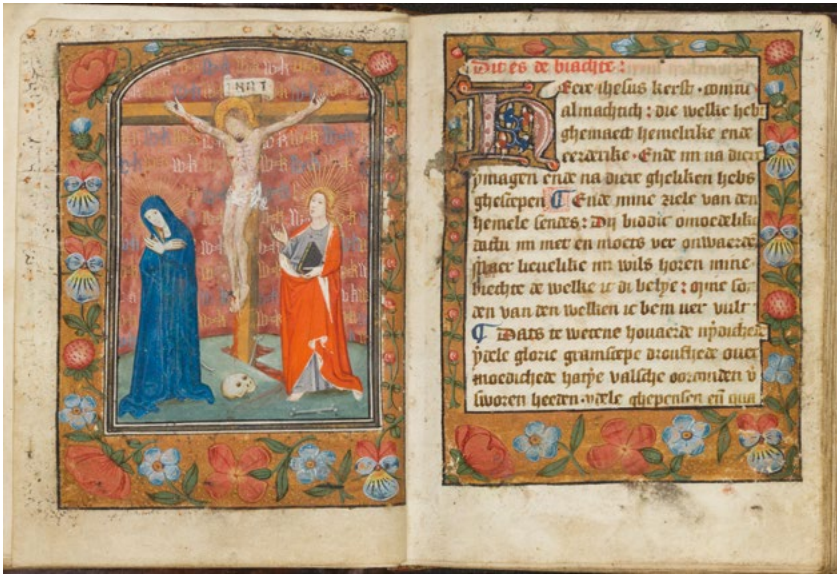 INRI
Dit es de biachte:
Here ihesus kerst·
almachtich: die welke heb
ghemaect hemelrike ende
eerderike· Ende mi na diere
ymagen ende na diere gheliken hebs
ghescepen Ende mine ziele van den
hemele sendes: Dij biddic omoedelike
mi met en moets ver onwaerde
Maer lieuelike mi wils horen mine
biechte de welke ic di belye: mine
den van den welken ic bem ver vult
Dats te wetene houaerde nydichede
ydele glorie gramscepe droufhede ouer
moedichede valsche
sworen heeden· ydele ghepensen en qua